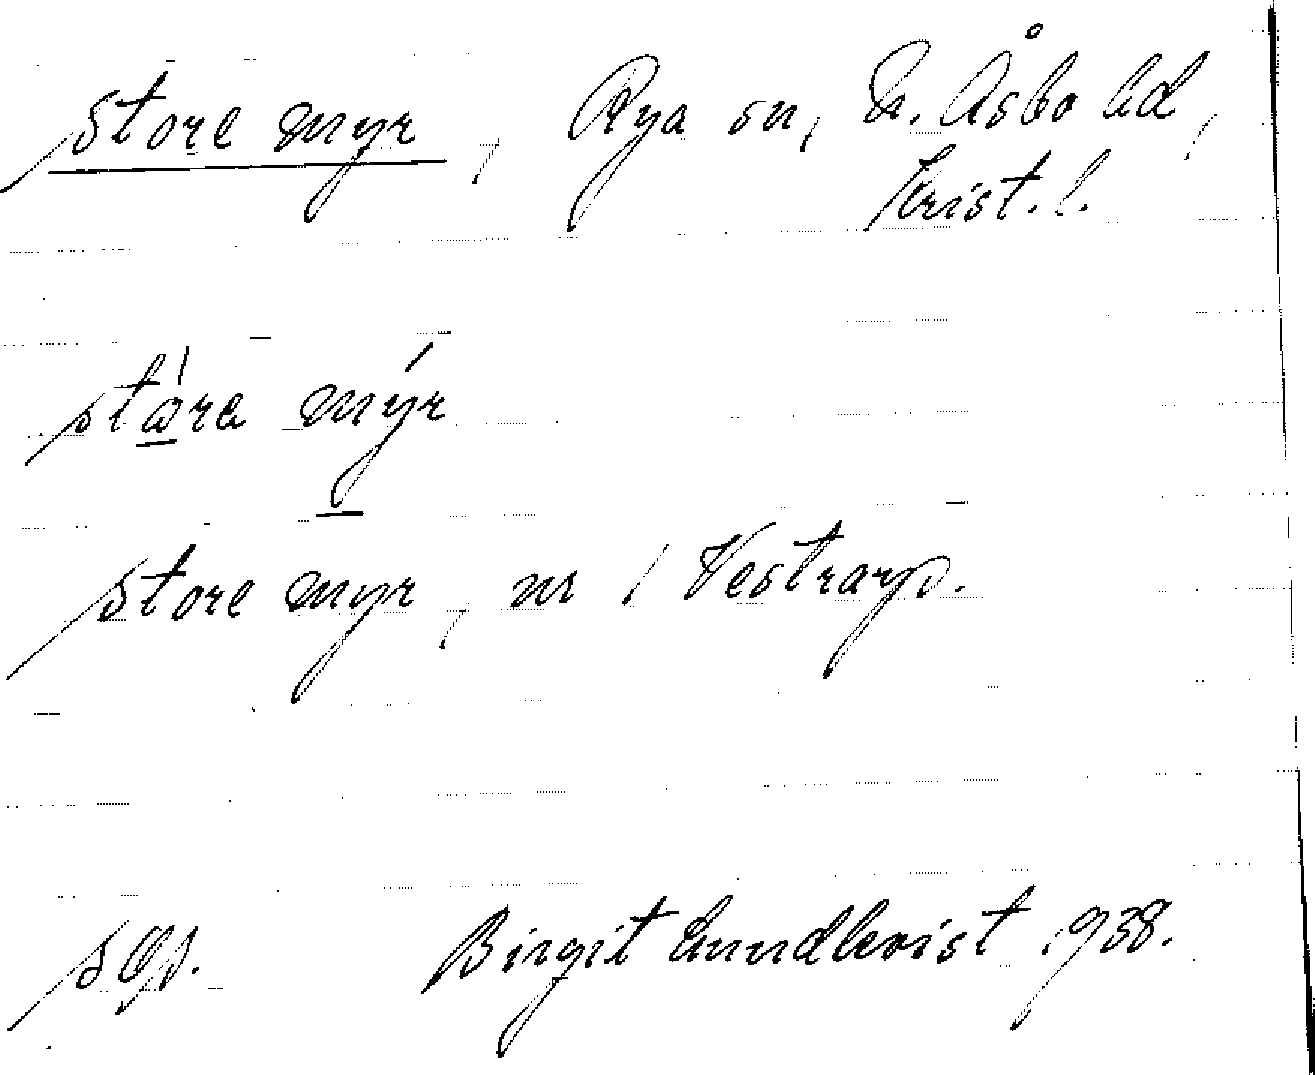 Store myr, Rya sn, N. Åsbo hd,
Krist. l.
stårə mýr
Store myr, nr 1 Vestrarp.
sgs. Birgit Lundkvist 1938.